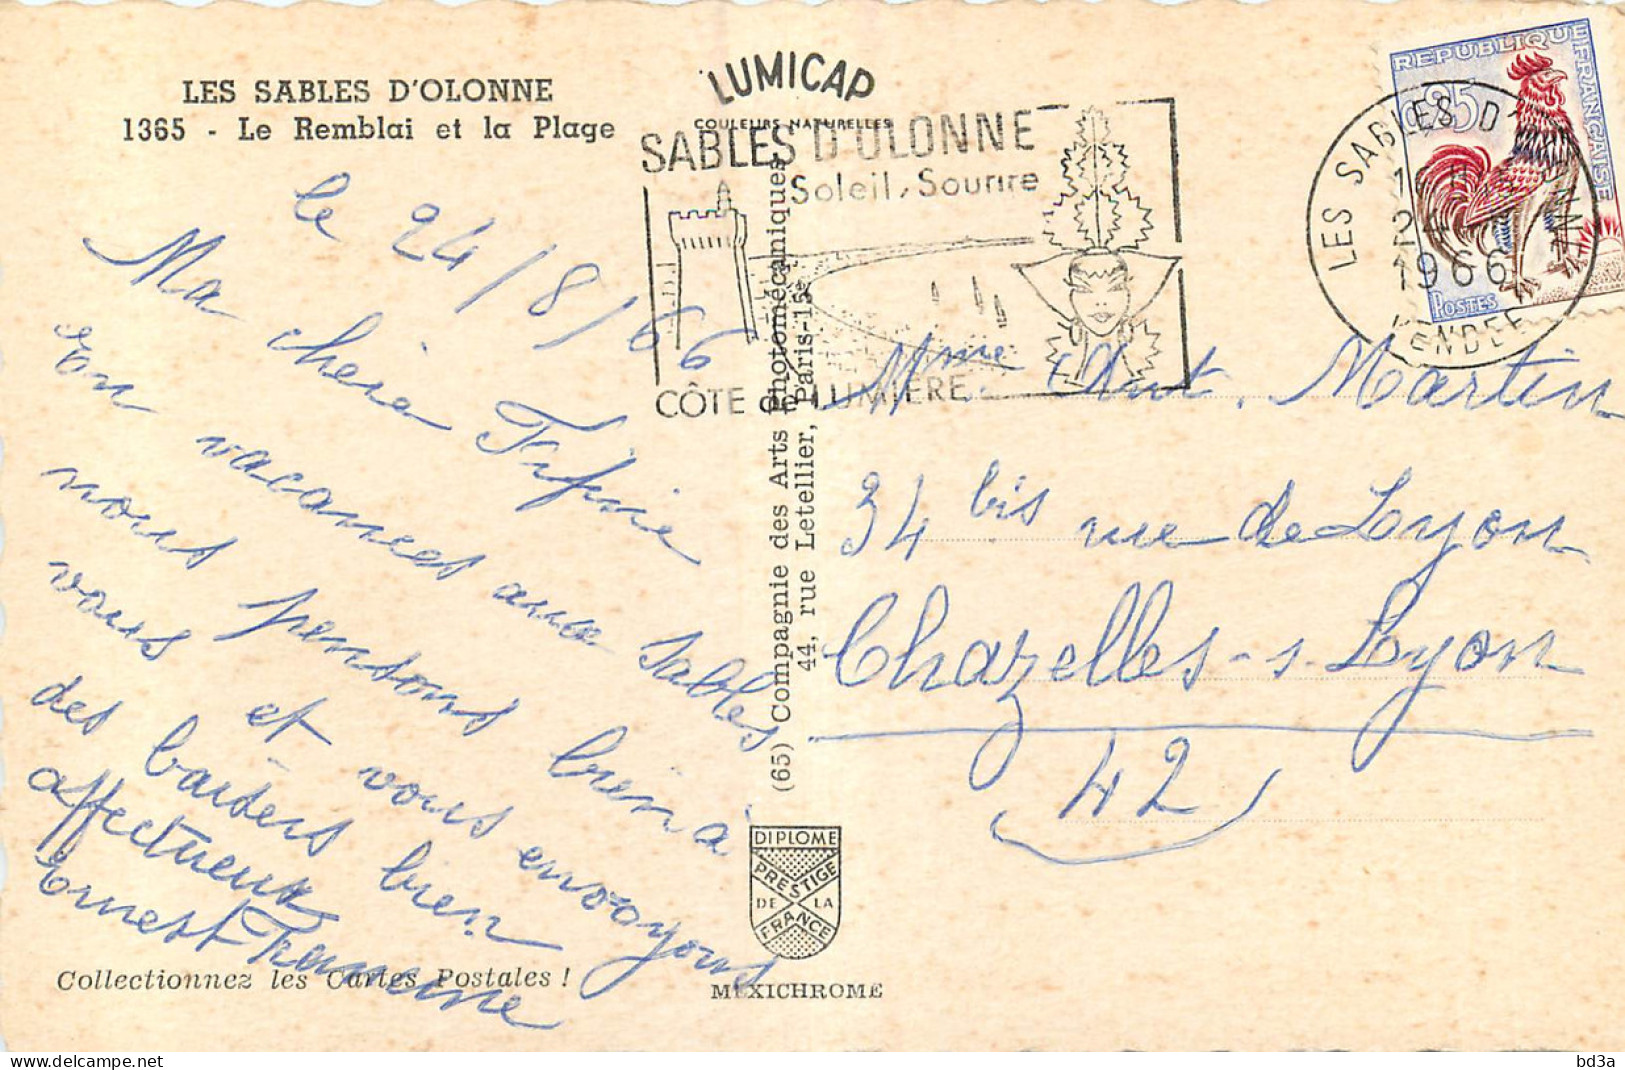 LES SABLES D'OLONNE
1365 - Le Remblai et la Plage
LUMICAP
COULEURS NATURELLES
SABLES D'OLONNE
Soleil, Sourire
CÔTE de LUMIERE
REPUBLIQUE FRANÇAISE
0,25
POSTES
LES SABLES D'OLONNE
24
1966
VENDEE
le 24/8/66
Ma chère Fifine
En vacances aux Sables
nous pensons bien à
vous et vous envoyons
des baisers bien
affectueux
Ernest
Mme Ant. Martin
34 bis rue de Lyon
Chazelles-s. Lyon
42
(65) Compagnie des Arts Photomécaniques
44, rue Letellier, Paris-15e
DIPLOME
PRESTIGE
DE LA
FRANCE
Collectionnez les Cartes Postales !
MEXICHROME
bd3a